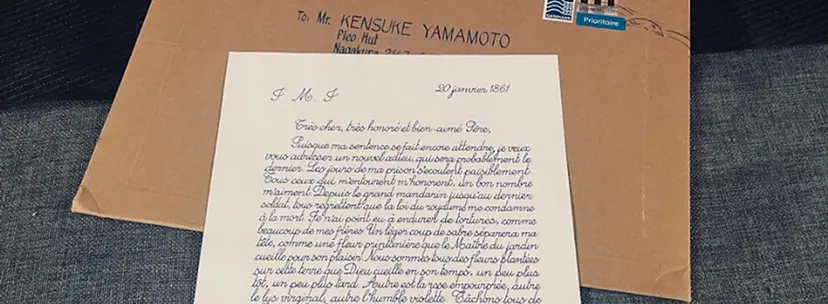 Prioritaire
To, Mr. KENSUKE YAMAMOTO
Pleo Hut
Nagakura
J. M. J
20 janvier 1861
Très cher, très honoré et bien-aimé Père,
Puisque ma sentence se fait encore attendre, je veux
vous adresser un nouvel adieu, qui sera probablement le
dernier. Les jours de ma prison s'écoulent paisiblement.
Tous ceux qui m'entourent m'honorent, un bon nombre
m'aiment. Depuis le grand mandarin jusqu'au dernier
soldat, tous regrettent que la loi du royaume me condamne
à la mort. Je n'ai point eu à endurer de tortures, comme
beaucoup de mes frères. Un léger coup de sabre séparera ma
tête, comme une fleur printanière que le Maître du jardin
cueille pour son plaisir. Nous sommes tous des fleurs plantées
sur cette terre que Dieu cueille en son temps, un peu plus
tôt, un peu plus tard. Autre est la rose empourprée, autre
le lys virginal, autre l'humble violette. Tâchons tous de